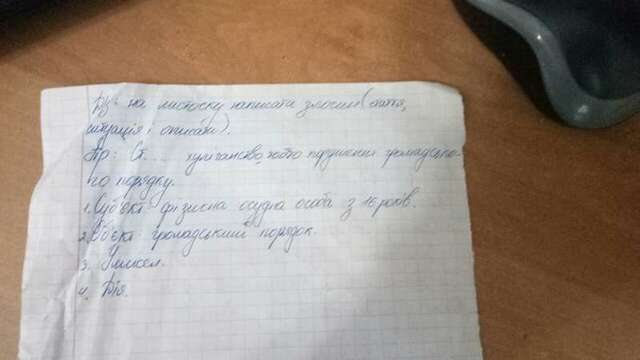 ДЗ: на листочку написати злочин (стаття,
ситуація і описати).
Пр: Ст.... хуліганство, тобто порушення громадсько-
го порядку.
1. Суб'єкт: фізична осудна особа з 16 років.
2. Об'єкт: громадський порядок.
3. Умисел.
4. Дія.